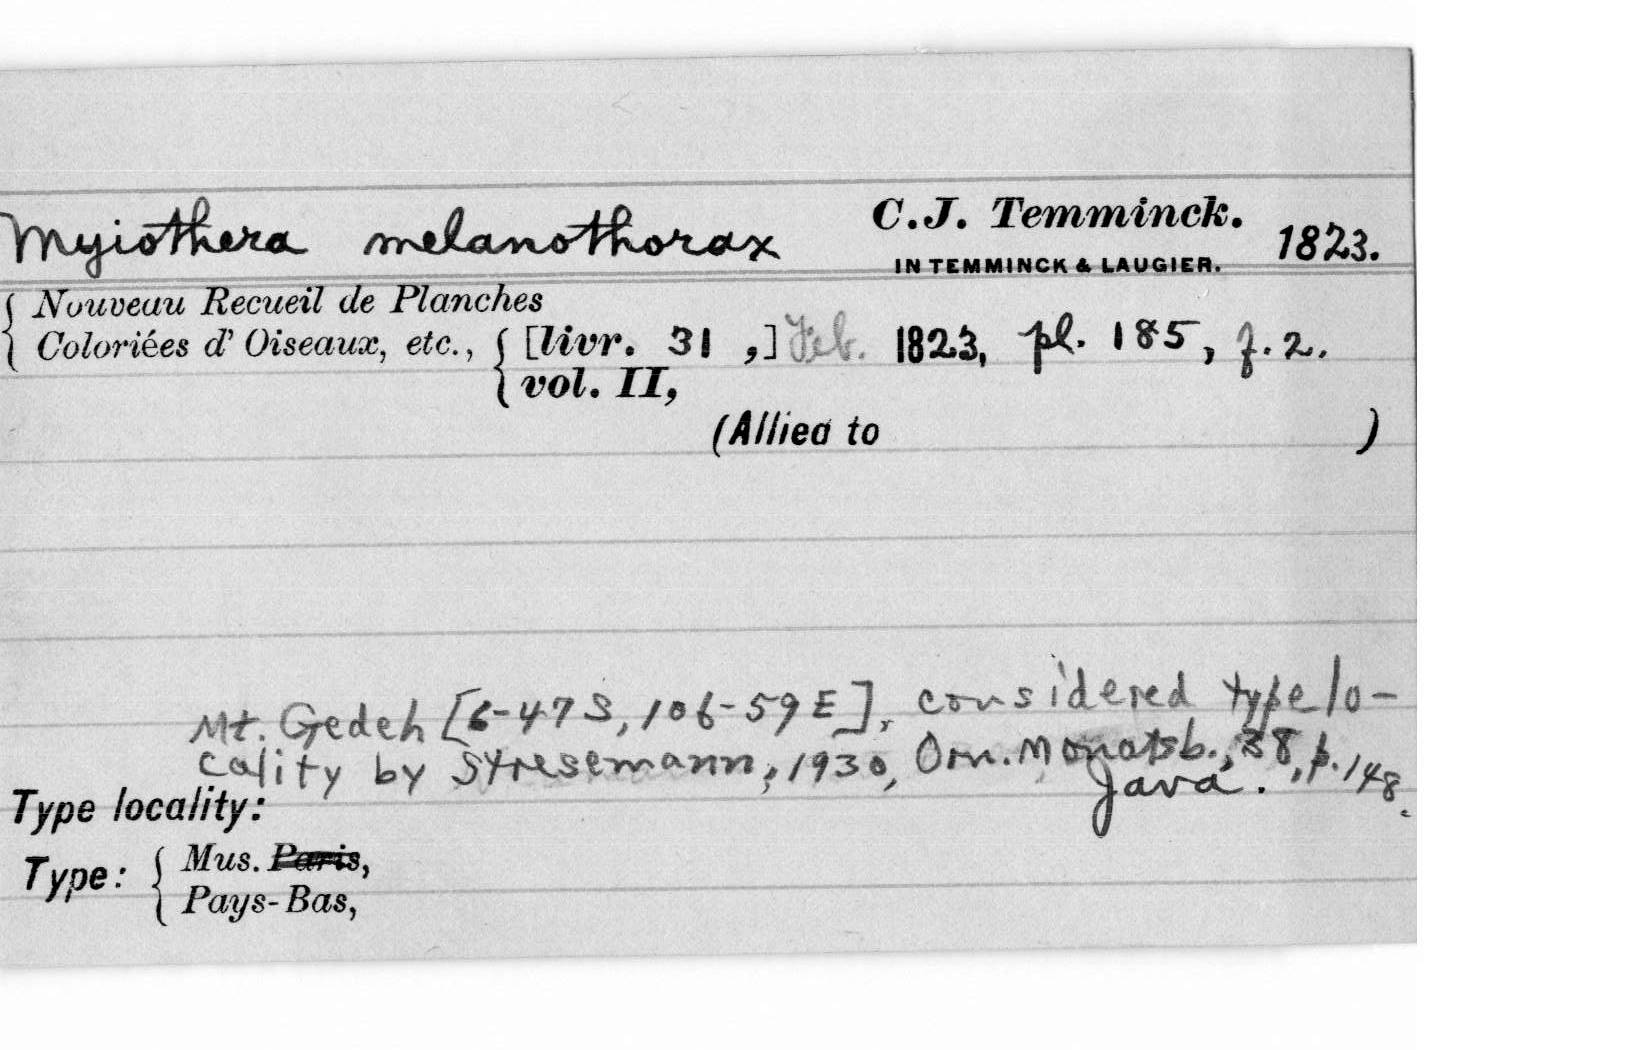 Myiothera melanothorax C.J. Temminck. 1823.
IN TEMMINCK & LAUGIER.
Nouveau Recueil de Planches
Coloriées d' Oiseaux, etc., [livr. 31 ,] Feb. 1823, pl. 185, f. 2.
vol. II,
(Allied to )
Mt. Gedeh [6-47S, 106-59E], considered type lo-
cality by Stresemann, 1930, Orn. Monatsb., 38, p. 148.
Type locality: Java.
Type: Mus. Paris,
Pays-Bas,